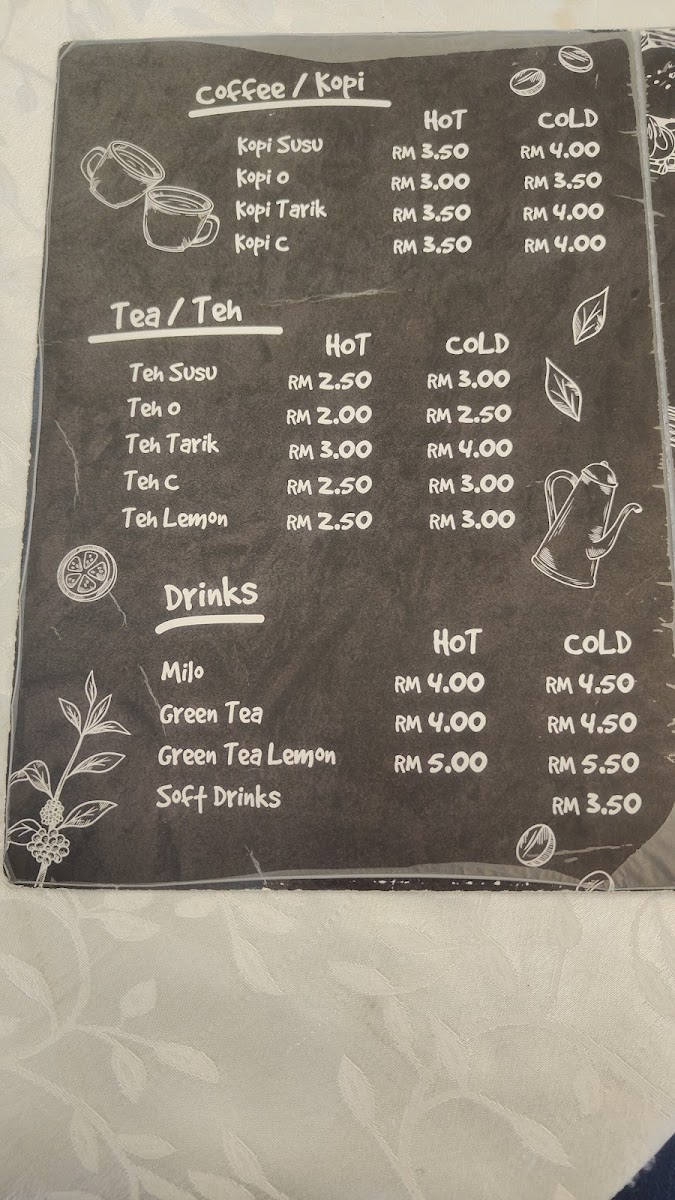 Coffee / Kopi
HOT COLD
Kopi Susu RM 3.50 RM 4.00
Kopi O RM 3.00 RM 3.50
Kopi Tarik RM 3.50 RM 4.00
Kopi C RM 3.50 RM 4.00
Tea / Teh
HOT COLD
Teh Susu RM 2.50 RM 3.00
Teh O RM 2.00 RM 2.50
Teh Tarik RM 3.00 RM 4.00
Teh C RM 2.50 RM 3.00
Teh Lemon RM 2.50 RM 3.00
Drinks
HOT COLD
Milo RM 4.00 RM 4.50
Green Tea RM 4.00 RM 4.50
Green Tea Lemon RM 5.00 RM 5.50
Soft Drinks RM 3.50